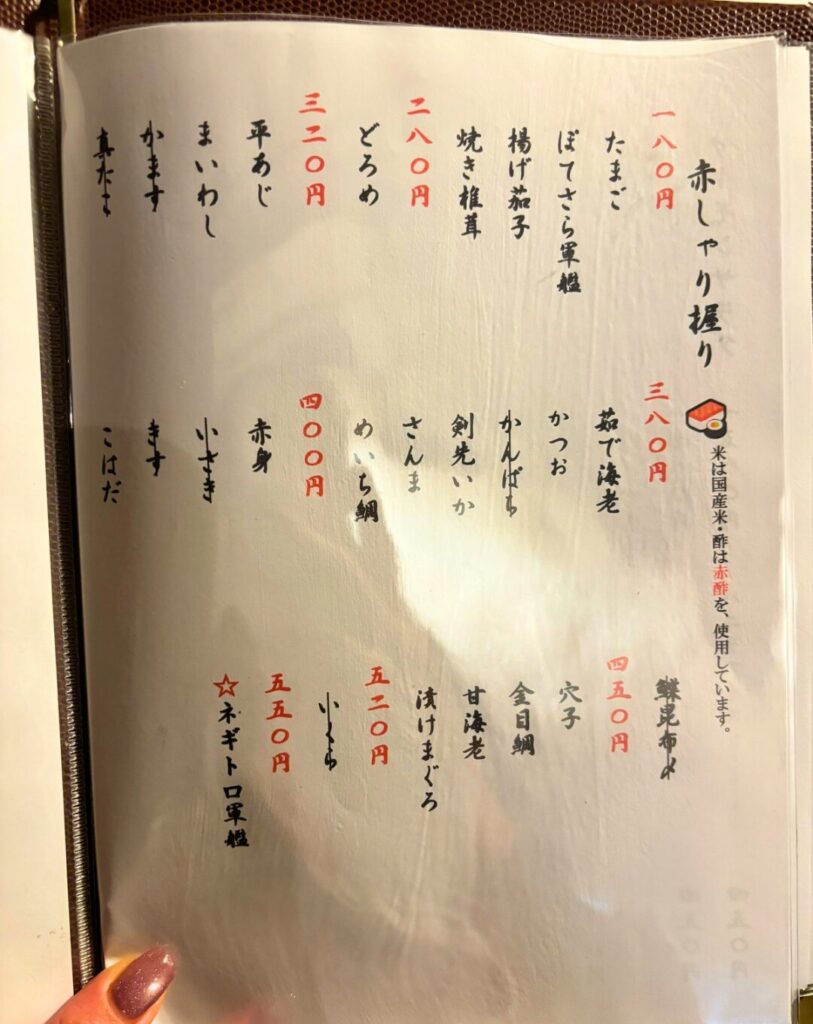 赤しゃり握り
米は国産米・酢は赤酢を、使用しています。
一八〇円
たまご
ぽてさら軍艦
揚げ茄子
焼き椎茸
二八〇円
どろめ
三二〇円
平あじ
まいわし
かます
真だこ
三八〇円
茹で海老
かつお
かんぱち
剣先いか
さんま
めいち鯛
四〇〇円
赤身
いさき
きす
こはだ
昆布〆
四五〇円
穴子
金目鯛
甘海老
漬けまぐろ
五二〇円
いくら
五五〇円
☆ネギトロ軍艦